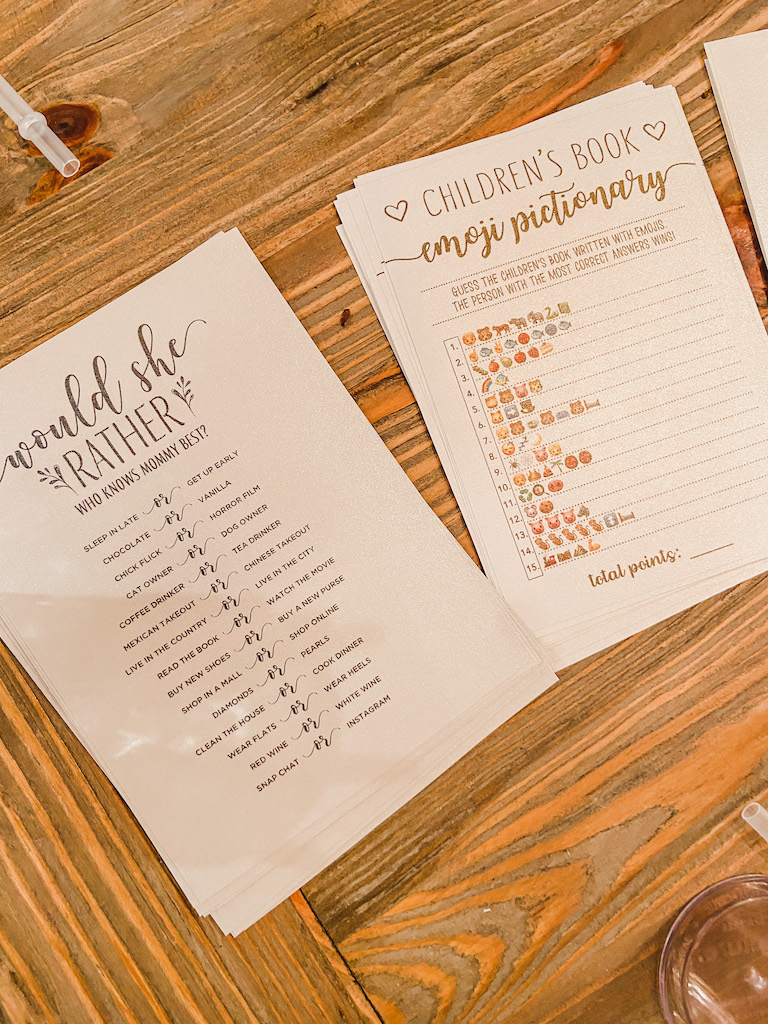 would she
RATHER
WHO KNOWS MOMMY BEST?
SLEEP IN LATE or GET UP EARLY
CHOCOLATE or VANILLA
CHICK FLICK or HORROR FILM
CAT OWNER or DOG OWNER
COFFEE DRINKER or TEA DRINKER
MEXICAN TAKEOUT or CHINESE TAKEOUT
LIVE IN THE COUNTRY or LIVE IN THE CITY
READ THE BOOK or WATCH THE MOVIE
BUY NEW SHOES or BUY A NEW PURSE
SHOP IN A MALL or SHOP ONLINE
DIAMONDS or PEARLS
CLEAN THE HOUSE or COOK DINNER
WEAR FLATS or WEAR HEELS
RED WINE or WHITE WINE
SNAP CHAT or INSTAGRAM
CHILDREN'S BOOK
emoji pictionary
GUESS THE CHILDREN'S BOOK WRITTEN WITH EMOJIS.
THE PERSON WITH THE MOST CORRECT ANSWERS WINS!
1.
2.
3.
4.
5.
6.
7.
8.
9.
10.
11.
12.
13.
14.
15.
total points: